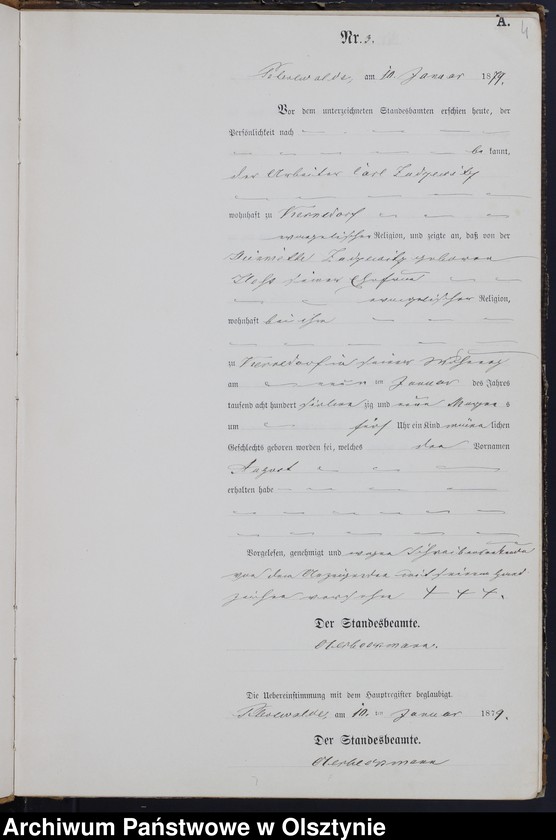 A.
4
Nr. 3.
am 10. Januar 1879.
Vor dem unterzeichneten Standesbamten erschien heute, der
Persönlichkeit nach
be kannt,
der Arbeiter Carl
wohnhaft zu
evangelischer Religion, und zeigte an, daß von der
geborene
seiner Ehefrau
evangelischer Religion,
wohnhaft bei ihm
zu in seiner Wohnung
am neun ten Januar des Jahres
tausend acht hundert sieben zig und neun Morgens
um fünf Uhr ein Kind männ lichen
Geschlechts geboren worden sei, welches den Vornamen
August
erhalten habe
Vorgelesen, genehmigt und wegen Schreibensunkunde
von dem Anzeigenden mit seinem Hand
zeichen versehen + + +.
Der Standesbeamte.
Oterbeckmann.
Die Uebereinstimmung mit dem Hauptregister beglaubigt.
am 10. ten Januar 1879.
Der Standesbeamte.
Oterbeckmann
Archiwum Państwowe w Olsztynie